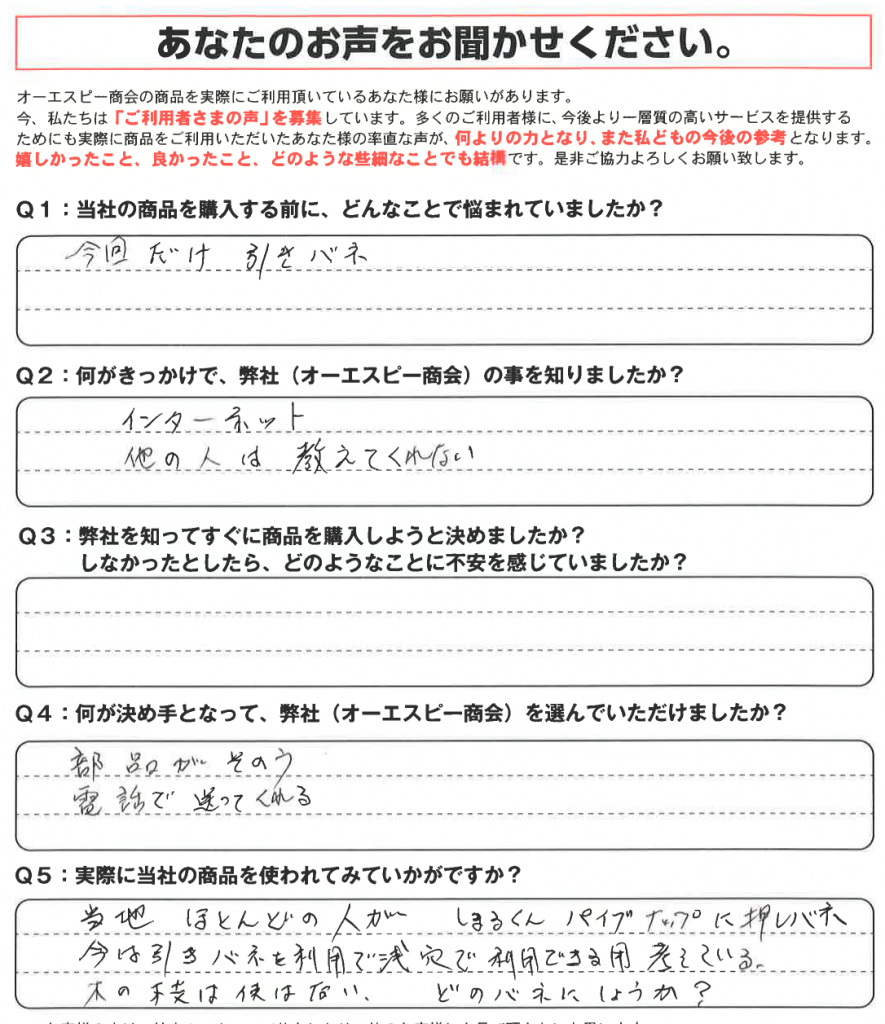 あなたのお声をお聞かせください。
オーエスピー商会の商品を実際にご利用頂いているあなた様にお願いがあります。
今、私たちは「ご利用者さまの声」を募集しています。多くのご利用者様に、今後より一層質の高いサービスを提供する
ためにも実際に商品をご利用いただいたあなた様の率直な声が、何よりの力となり、また私どもの今後の参考となります。
嬉しかったこと、良かったこと、どのような些細なことでも結構です。是非ご協力よろしくお願い致します。
Q1：当社の商品を購入する前に、どんなことで悩まれていましたか？
今回だけ 引きバネ
Q2：何がきっかけで、弊社（オーエスピー商会）の事を知りましたか？
インターネット
他の人は 教えてくれない
Q3：弊社を知ってすぐに商品を購入しようと決めましたか？
しなかったとしたら、どのようなことに不安を感じていましたか？
Q4：何が決め手となって、弊社（オーエスピー商会）を選んでいただけましたか？
部品が そのう
電話で 送ってくれる
Q5：実際に当社の商品を使われてみていかがですか？
当地 ほとんどの人が しまるくん パイプ に押しバネ
今は引きバネを利用で浅穴で利用できる用 考えている。
木の は使はない、 どのバネにしようか？